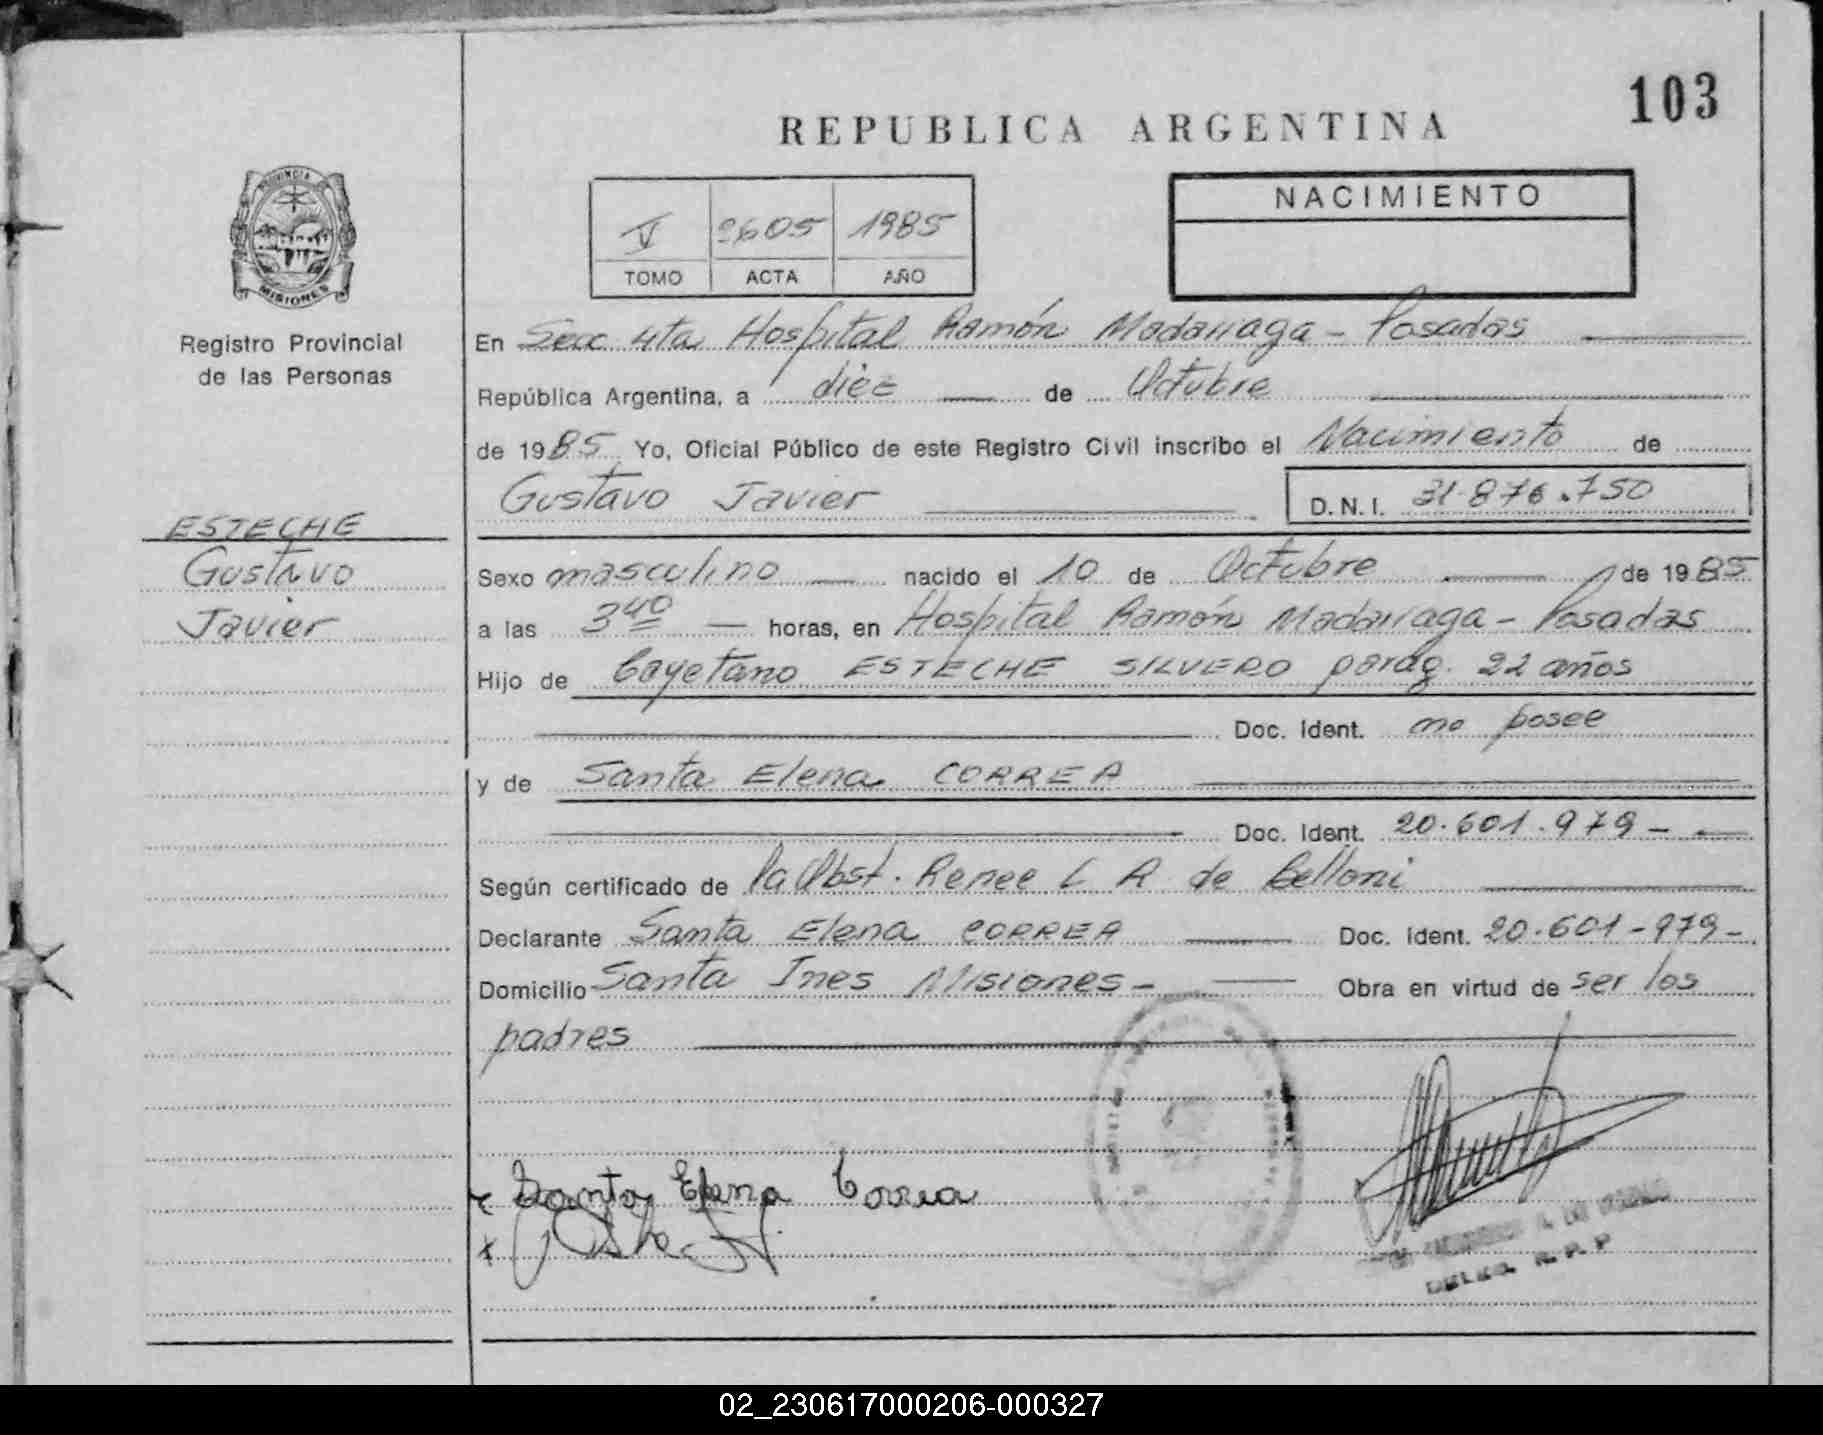 103
REPUBLICA ARGENTINA
PROVINCIA DE
MISIONES
Registro Provincial
de las Personas
V 2605 1985
TOMO ACTA AÑO
NACIMIENTO
En Secc 4ta Hospital Ramón Madariaga - Posadas
República Argentina, a diez de Octubre
de 1985 Yo, Oficial Público de este Registro Civil inscribo el Nacimiento de
Gustavo Javier D.N.I. 31.876.750
ESTECHE
Gustavo
Javier
Sexo masculino nacido el 10 de Octubre de 1985
a las 3 40 horas, en Hospital Ramón Madariaga - Posadas
Hijo de Cayetano ESTECHE SILVERO parag. 22 años
Doc. Ident. no posee
y de Santa Elena CORREA
Doc. Ident. 20.601.979 -
Según certificado de la Obst. Renee L R de Belloni
Declarante Santa Elena CORREA Doc. Ident. 20.601-979-
Domicilio Santa Ines Misiones - Obra en virtud de ser los
padres
Santa Elena Correa
R. P. P
02_230617000206-000327